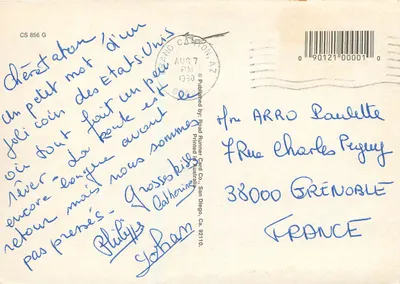 CS 856 G
Chère tatan,
Un petit mot d'un
joli coin des Etats-Unis
où tout fait un peu
rêver. La route est
encore longue avant
retour mais nous sommes
pas pressés.
Grosses bises
Catherine
Philippe
Yohan
GRAND CANYON, AZ
AUG 7
PM
1990
© Published by: Road Runner Card Co., San Diego, Ca. 92110.
Printed in Australia
0 90121 00001 0
ARRO Paulette
7 Rue Charles Péguy
38000 GRENOBLE
FRANCE